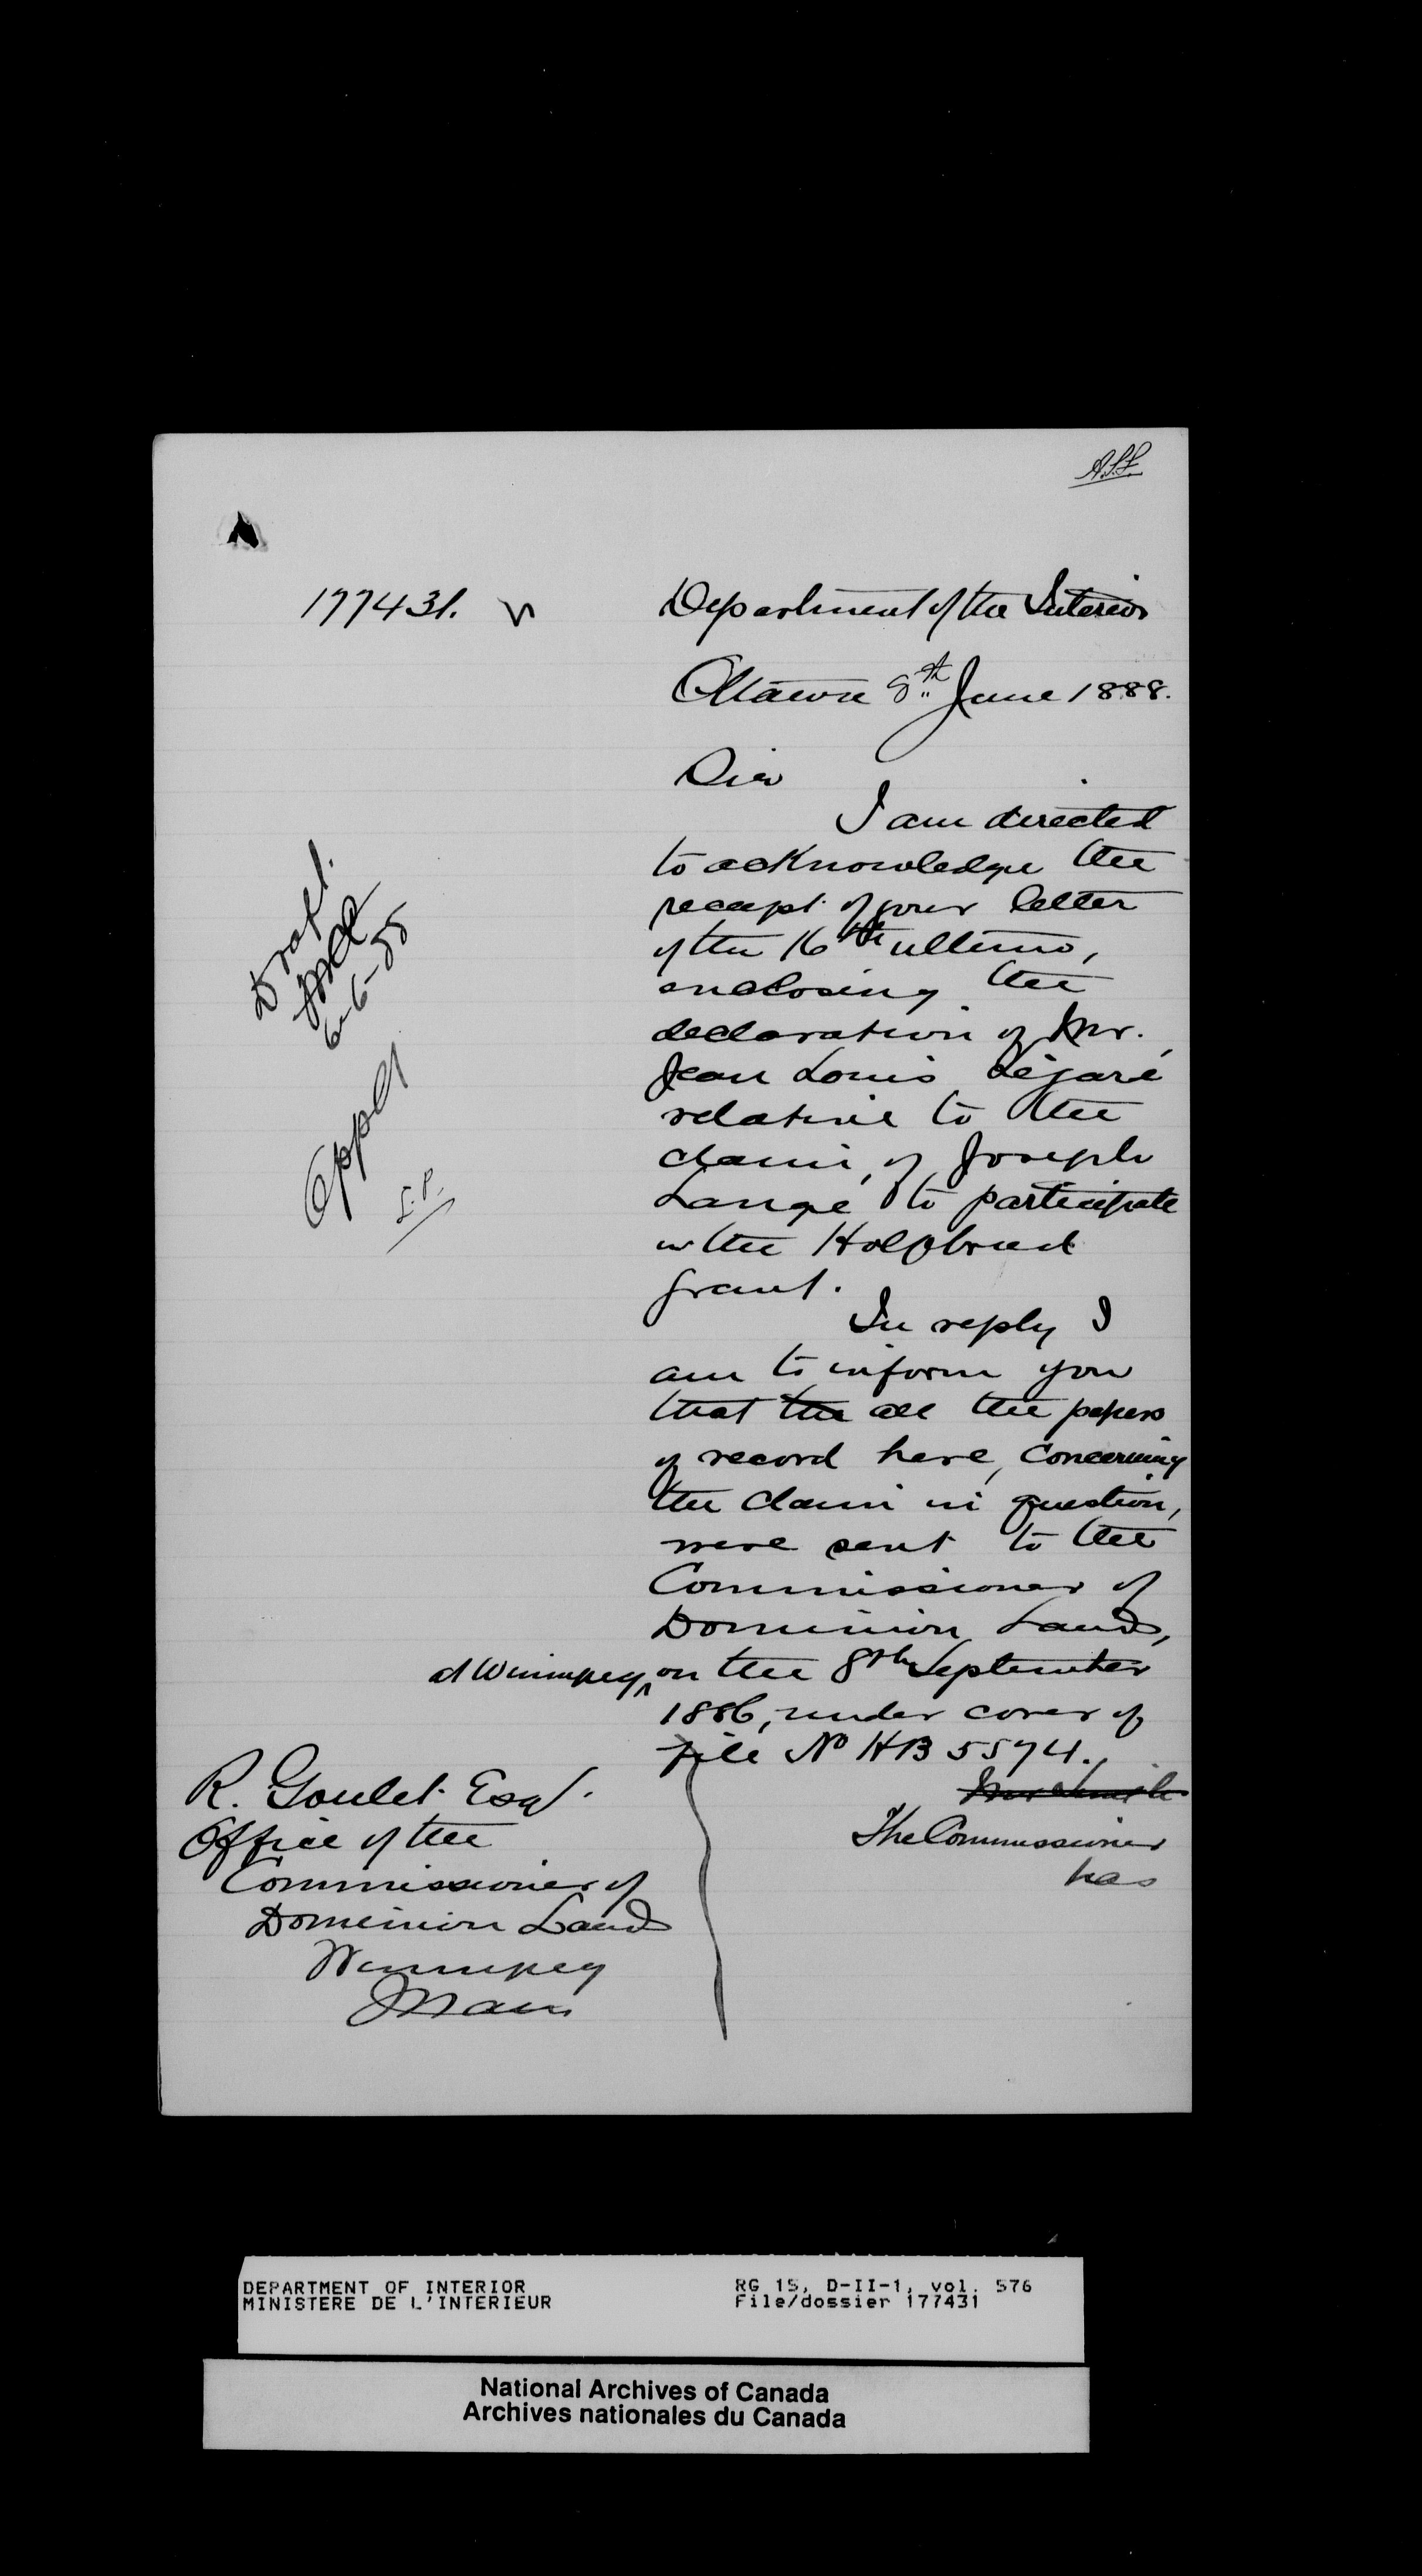 177431.
Department of the Interior
Ottawa 8th June 1888.
Sir
I am directed
to acknowledge the
receipt of your letter
of the 16th ultimo,
enclosing the
declaration of Mr.
Jean Louis Légaré
relative to the
claim of Joseph
Langé to participate
in the Halfbreed
grant.
In reply I
am to inform you
that the all the papers
of record here, concerning
the claim in question,
were sent to the
Commissioner of
Dominion Lands,
at Winnipeg on the 8th September
1886, under cover of
file No HB 5574.
The Commissioner
has
Draft.
6-6-88
R. Goulet Esq.
Office of the
Commissioner of
Dominion Lands
Winnipeg
Man
DEPARTMENT OF INTERIOR
MINISTERE DE L'INTERIEUR
RG 15, D-II-1, vol. 576
File/dossier 177431
National Archives of Canada
Archives nationales du Canada